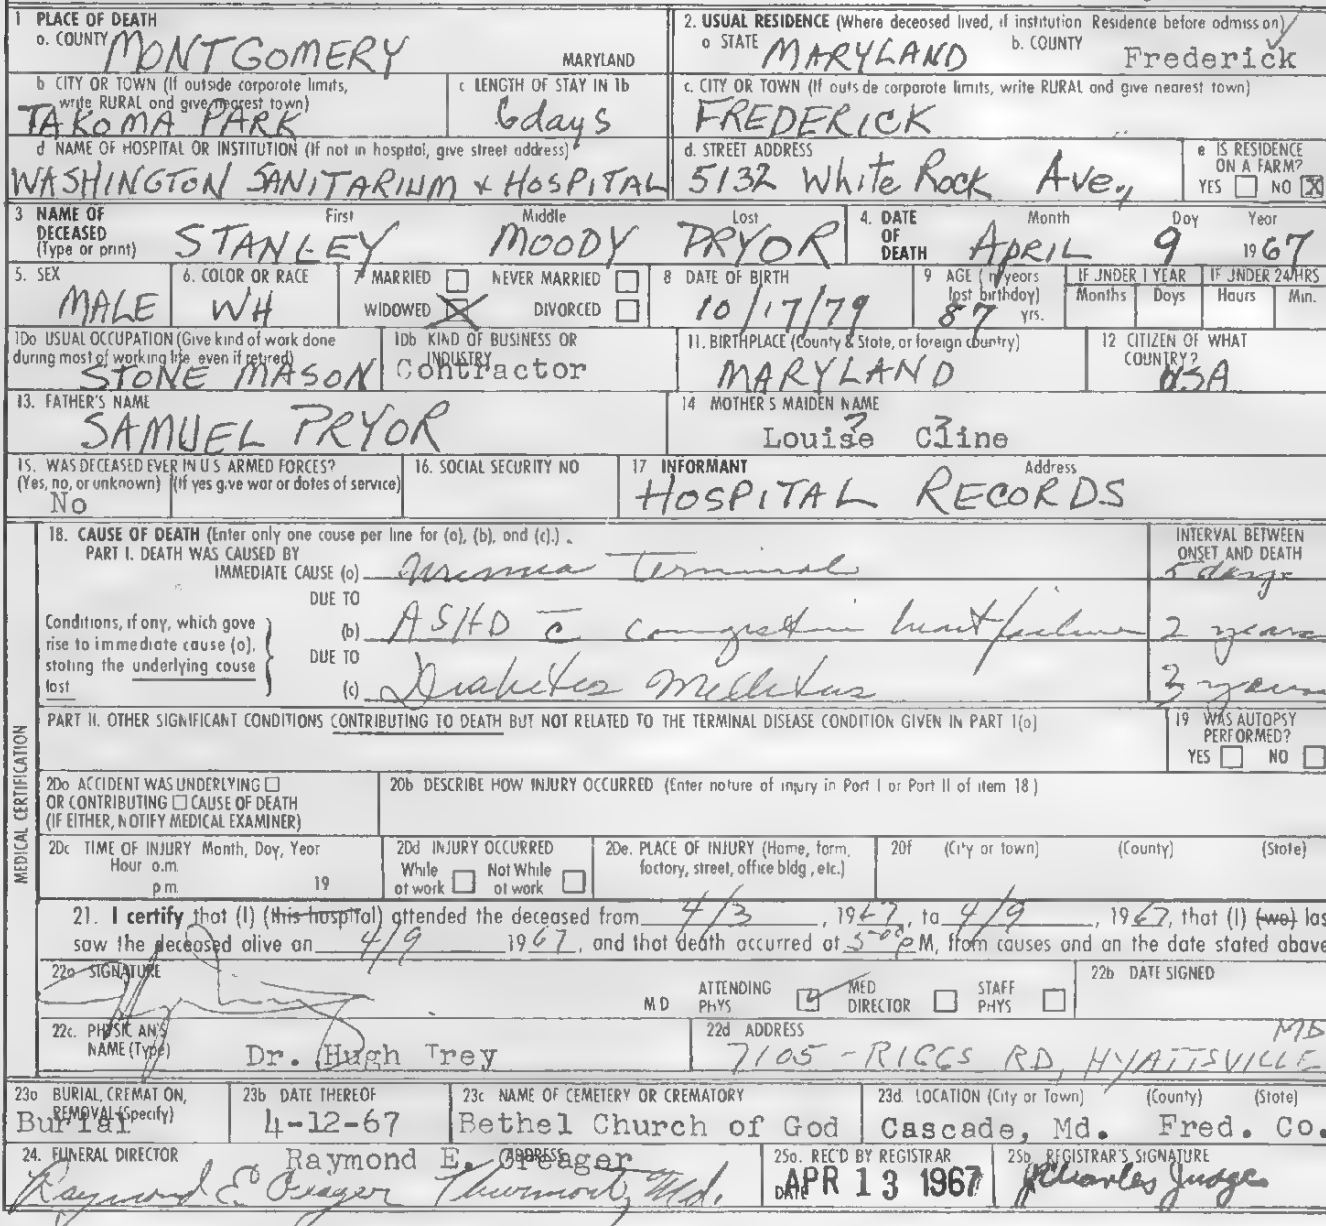 1 PLACE OF DEATH
a. COUNTY MONTGOMERY MARYLAND
2. USUAL RESIDENCE (Where deceased lived, if institution Residence before admission)
a STATE MARYLAND b. COUNTY Frederick
b CITY OR TOWN (If outside corporate limits, write RURAL and give nearest town)
TAKOMA PARK
c LENGTH OF STAY IN 1b
6 days
c. CITY OR TOWN (If outside corporate limits, write RURAL and give nearest town)
FREDERICK
d NAME OF HOSPITAL OR INSTITUTION (If not in hospital, give street address)
WASHINGTON SANITARIUM & HOSPITAL
d. STREET ADDRESS
5132 White Rock Ave.,
e IS RESIDENCE ON A FARM?
YES NO X
3 NAME OF DECEASED (Type or print)
First Middle Last
STANLEY MOODY PRYOR
4. DATE OF DEATH
Month Day Year
APRIL 9 1967
5. SEX
MALE
6. COLOR OR RACE
WH
7 MARRIED NEVER MARRIED
WIDOWED X DIVORCED
8 DATE OF BIRTH
10/17/79
9 AGE (In years last birthday)
87 yrs.
IF UNDER 1 YEAR
Months Days
IF UNDER 24 HRS
Hours Min.
10a USUAL OCCUPATION (Give kind of work done during most of working life, even if retired)
STONE MASON
10b KIND OF BUSINESS OR INDUSTRY
Contractor
11. BIRTHPLACE (County & State, or foreign country)
MARYLAND
12 CITIZEN OF WHAT COUNTRY?
USA
13. FATHER'S NAME
SAMUEL PRYOR
14 MOTHER'S MAIDEN NAME
Louise Cline
15. WAS DECEASED EVER IN U S ARMED FORCES?
(Yes, no, or unknown) (If yes give war or dates of service)
No
16. SOCIAL SECURITY NO
17 INFORMANT Address
HOSPITAL RECORDS
MEDICAL CERTIFICATION
18. CAUSE OF DEATH (Enter only one cause per line for (a), (b), and (c).)
PART I. DEATH WAS CAUSED BY
IMMEDIATE CAUSE (a) Uremia Terminal
INTERVAL BETWEEN ONSET AND DEATH
5 days
Conditions, if any, which gave rise to immediate cause (a), stating the underlying cause last
DUE TO
(b) ASHD c̄ congestive heart failure 2 years
DUE TO
(c) Diabetes Mellitus 3 years
PART II. OTHER SIGNIFICANT CONDITIONS CONTRIBUTING TO DEATH BUT NOT RELATED TO THE TERMINAL DISEASE CONDITION GIVEN IN PART I(a)
19 WAS AUTOPSY PERFORMED?
YES NO
20a ACCIDENT WAS UNDERLYING
OR CONTRIBUTING CAUSE OF DEATH
(IF EITHER, NOTIFY MEDICAL EXAMINER)
20b DESCRIBE HOW INJURY OCCURRED (Enter nature of injury in Part I or Part II of item 18)
20c TIME OF INJURY Month, Day, Year
Hour a.m.
p m. 19
20d INJURY OCCURRED
While at work Not While at work
20e. PLACE OF INJURY (Home, farm, factory, street, office bldg, etc.)
20f (City or town) (County) (State)
21. I certify that (I) (this hospital) attended the deceased from 4/3, 1967, to 4/9, 1967, that (I) (we) las
saw the deceased alive on 4/9 1967, and that death occurred at 5:00 P M, from causes and on the date stated above
22a SIGNATURE
M D
ATTENDING PHYS MED DIRECTOR STAFF PHYS
22b DATE SIGNED
22c. PHYSICIAN'S NAME (Type)
Dr. Hugh Trey
22d ADDRESS
7105 - RIGGS RD, HYATTSVILLE MD
23a BURIAL, CREMATION, REMOVAL (Specify)
Burial
23b DATE THEREOF
4-12-67
23c NAME OF CEMETERY OR CREMATORY
Bethel Church of God
23d. LOCATION (City or Town) (County) (State)
Cascade, Md. Fred. Co.
24. FUNERAL DIRECTOR ADDRESS
Raymond E. Creager
Raymond E Creager Thurmont, Md.
25a. REC'D BY REGISTRAR
DATE APR 13 1967
25b REGISTRAR'S SIGNATURE
J Charles Judge